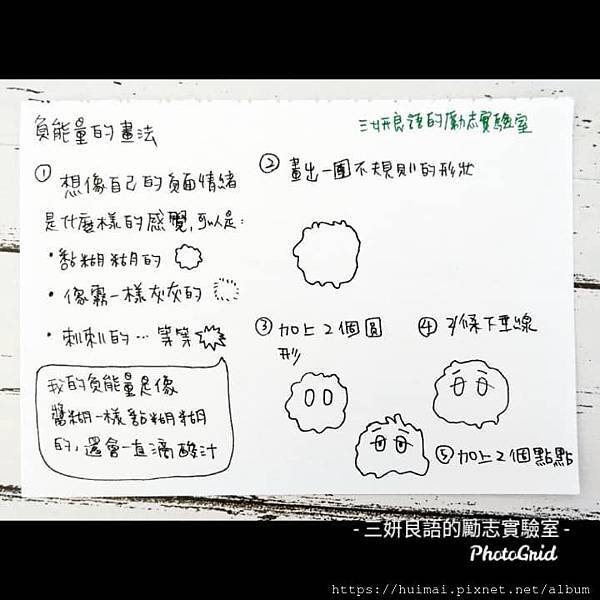 負能量的畫法
三妍良語的勵志實驗室
① 想像自己的負面情緒
是什麼樣的感覺,可以是:
・黏糊糊的
・像霧一樣灰灰的
・刺刺的…等等
我的負能量是像
醬糊一樣黏糊糊
的,還會一直滴酸汁
② 畫出一團不規則的形狀
③ 加上2個圓
形
④ 2條下垂線
⑤ 加上2個點點
- 三妍良語的勵志實驗室 -
PhotoGrid
https://huimai.pixnet.net/album